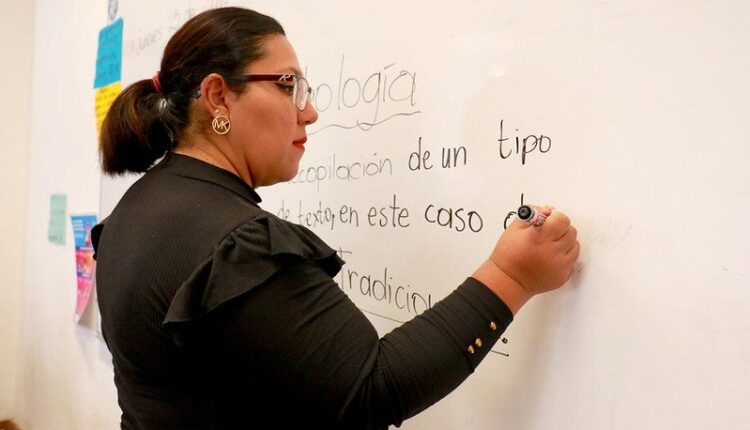 jueves 25 de
ología
copilación de un tipo
de texto, en este caso d
Tradicion
MK